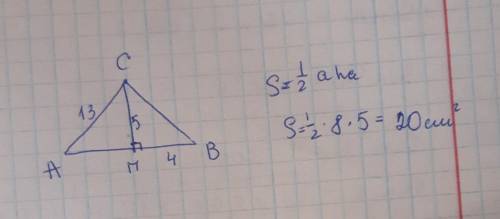 C
13
5
4
A
П
B
S=½ a ha
S=½·8·5=20см²